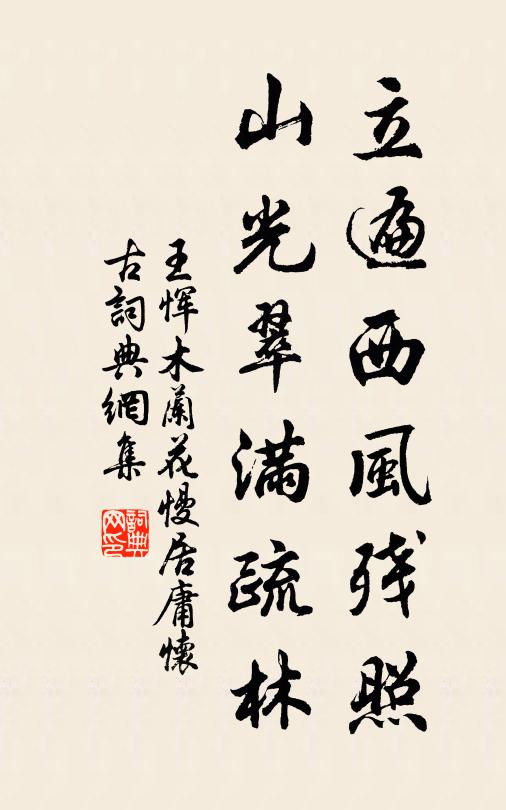 立遍西風残照
山光翠滿疏林
王恽木蘭花慢居庸懷
古詞典網集
詞典
网印